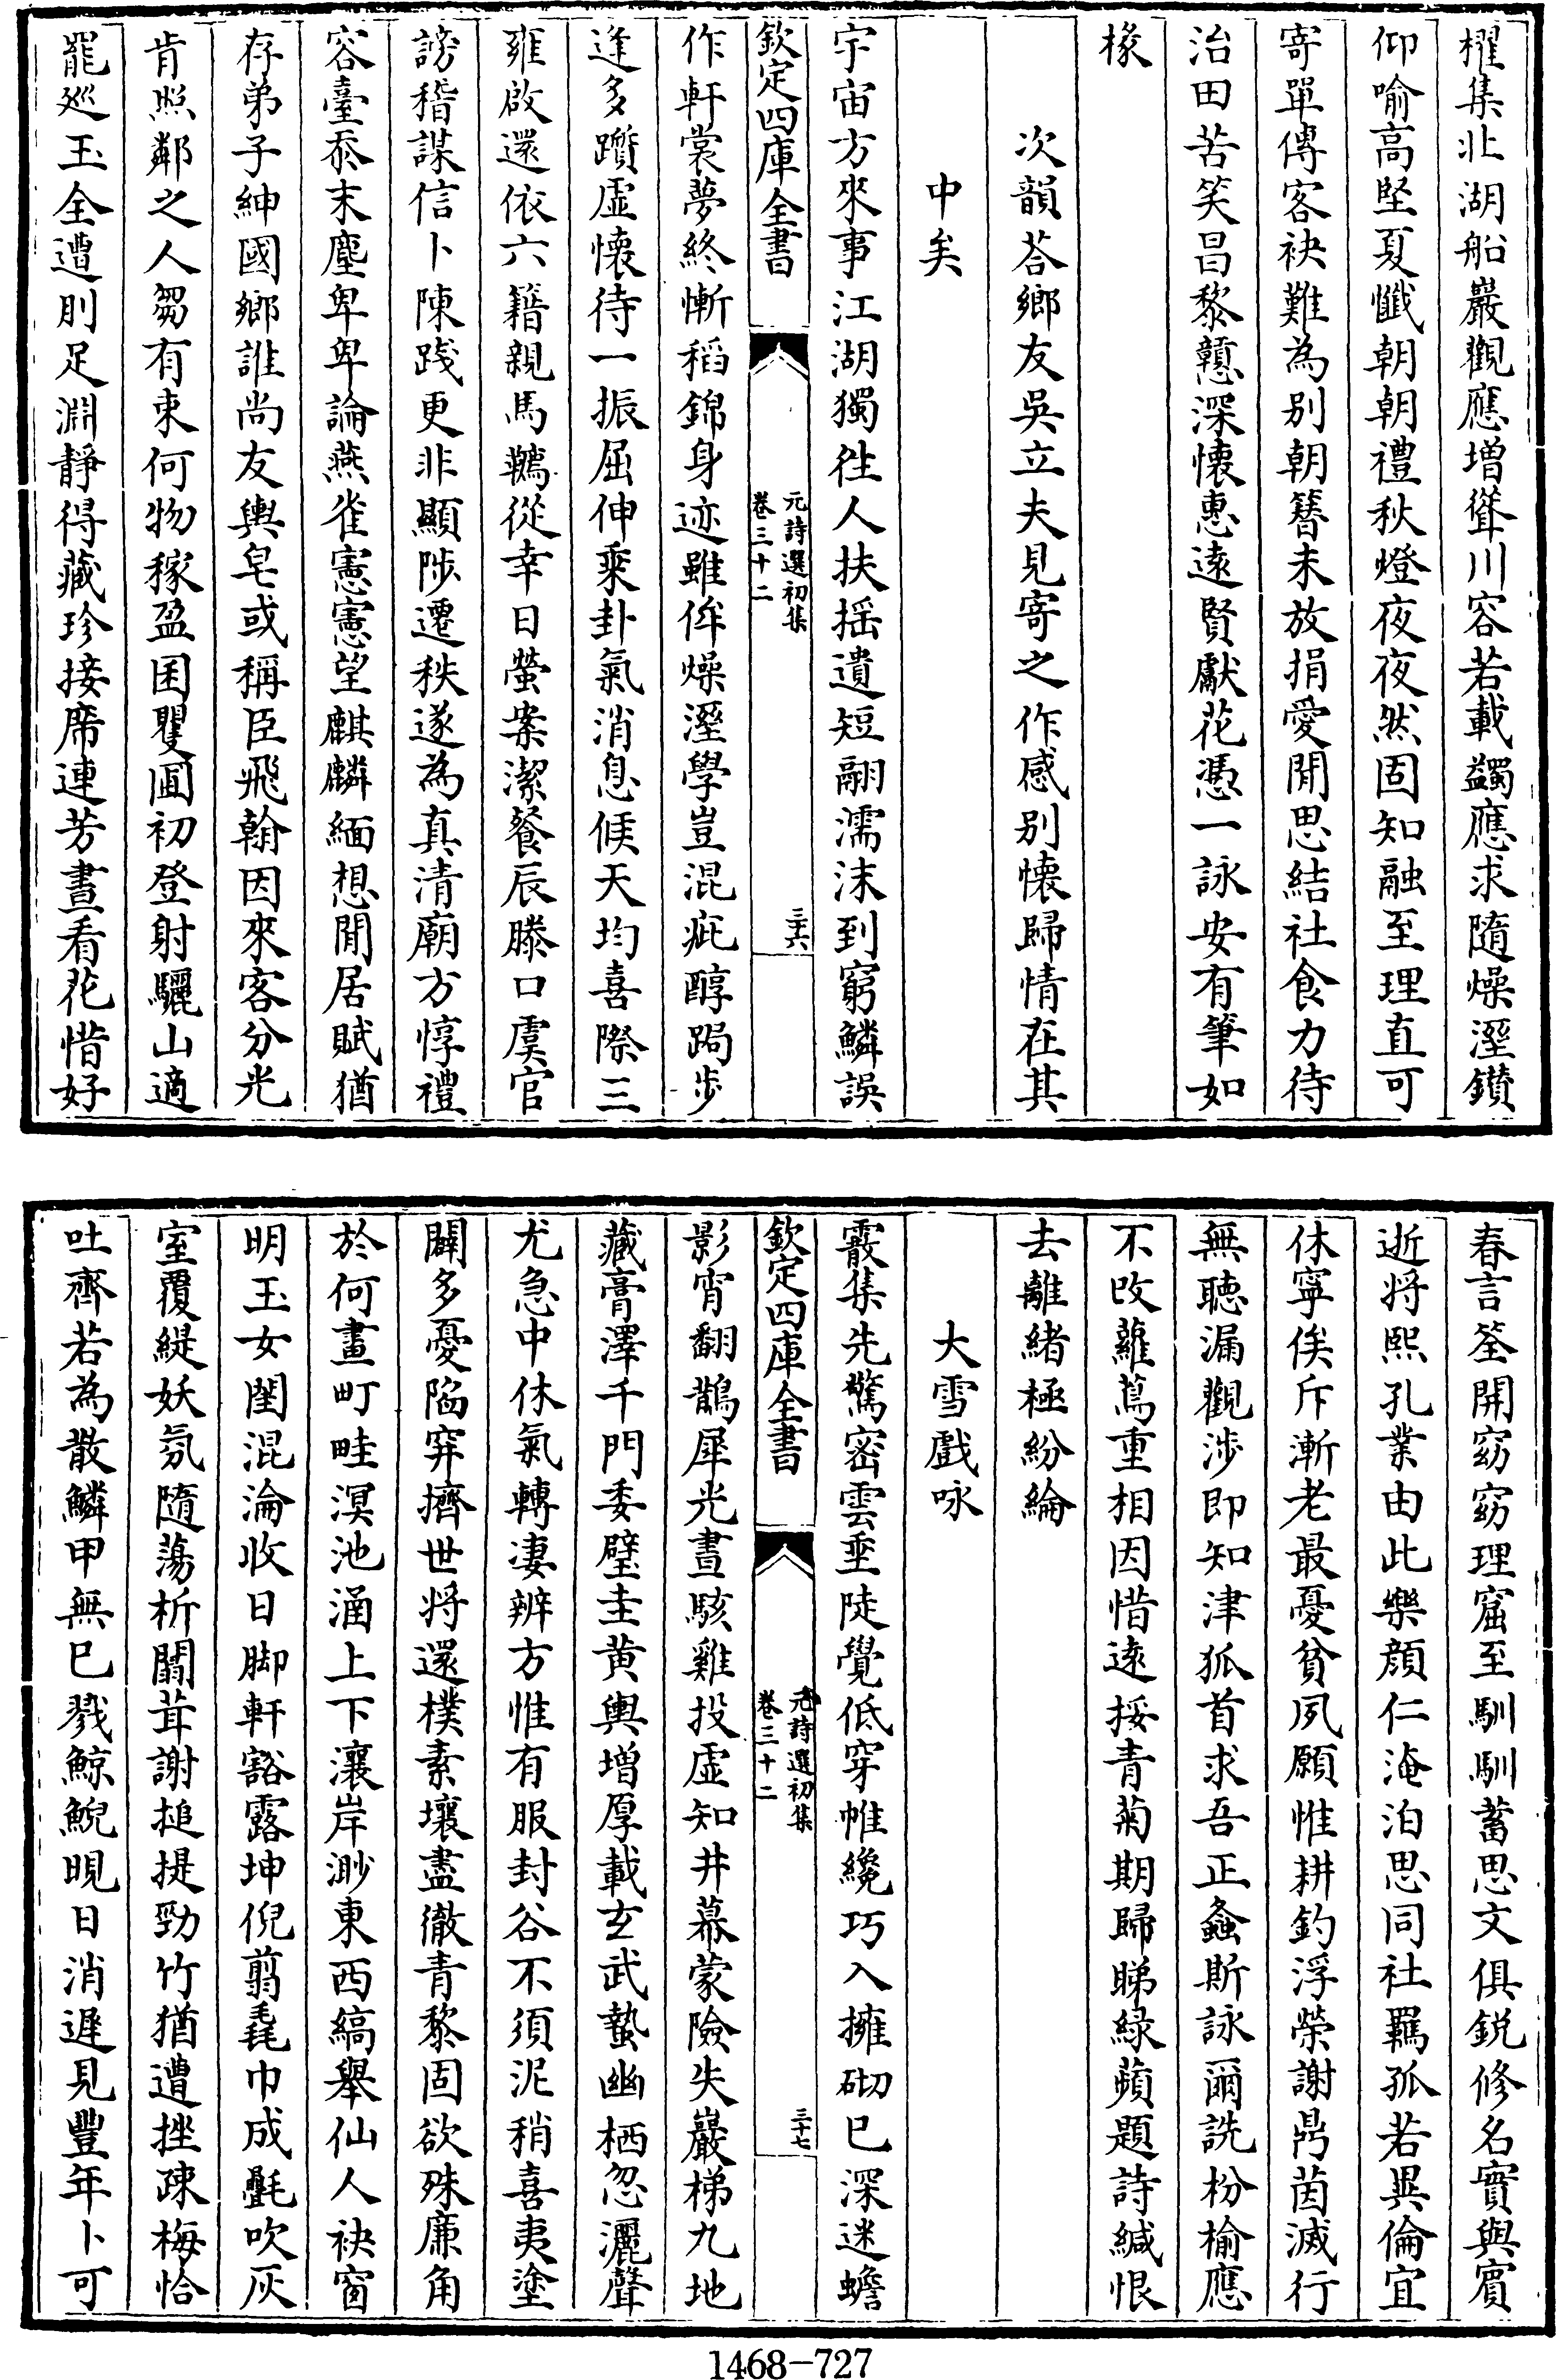 櫂集北湖船巖觀應增聳川容若載蠲應求隨燥溼鑚
仰喻高堅夏懺朝朝禮秋燈夜夜然固知融至理直可
寄單傳客袂難為別朝簪未放捐愛閒思結社食力待
治田苦笑昌黎戇深懐惠逺賢獻花慿一詠安有筆如
椽
次韻荅鄉友吳立夫見寄之作感別懐歸情在其
中矣
宇宙方來事江湖獨徃人扶揺遺短翮濡沫到窮鱗誤
欽定四庫全書
元詩選初集
卷三十二
三十六
作軒裳夢終慚稻錦身迹雖侔燥溼學豈混疵醇跼步
逢多躓虛懐待一振屈伸乘卦氣消息候天均喜際三
雍啟還依六籍親馬鞽從幸日螢案潔餐辰滕口虞官
謗稽謀信卜陳踐更非顯陟遷秩遂為真清廟方惇禮
容臺忝末塵卑卑論燕雀憲憲望麒麟緬想閒居賦猶
存弟子紳國鄉誰尚友輿皂或稱臣飛翰因來客分光
肯照鄰之人芻有束何物稼盈囷矍圃初登射驪山適
罷廵玉全遭刖足淵靜得藏珍接席連芳晝看花惜好
春言筌開窈窈理窟至馴馴蓄思文俱鋭修名實與賔
逝将熙孔業由此樂顔仁淹泊思同社羈孤若異倫宜
休寧俟斥漸老最憂貧夙願惟耕釣浮榮謝鼎茵滅行
無聽漏觀涉即知津狐首求吾正螽斯詠爾詵枌榆應
不改蘿蔦重相因惜逺挼青菊期歸睇緑蘋題詩緘恨
去離緒極紛綸
大雪戲咏
霰集先驚密雲垂陡覺低穿帷纔巧入擁砌已深迷蟾
欽定四庫全書
元詩選初集
卷三十二
三十七
影宵翻鵲犀光晝駭雞投虛知井幕蒙險失巖梯九地
藏膏澤千門委璧圭黄輿增厚載玄武蟄幽栖忽灑聲
尤急中休氣轉凄辨方惟有服封谷不須泥稍喜夷塗
闢多憂陷穽擠世将還樸素壤盡徹青黎固欲殊廉角
於何畫町畦溟池涵上下瀼岸渺東西縞舉仙人袂窗
明玉女閨混淪收日脚軒豁露坤倪翦毳巾成氎吹灰
室覆緹妖氛隨蕩析闒茸謝搥提勁竹猶遭挫疎梅恰
吐齊若為散鱗甲無已戮鯨鯢晛日消遲見豐年卜可
1468-727